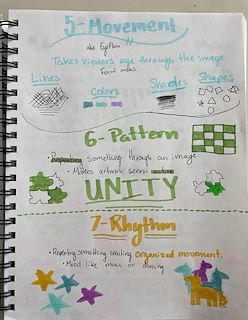 5-Movement
aka Eyeflow
Takes viewers eye through the image
focal areas
Lines Colors Shades Shapes
6-Pattern
• Repeating something through an image
• Makes artwork seem
UNITY
7-Rhythm
• Repeating something creating organized movement.
• Mood like music or dancing